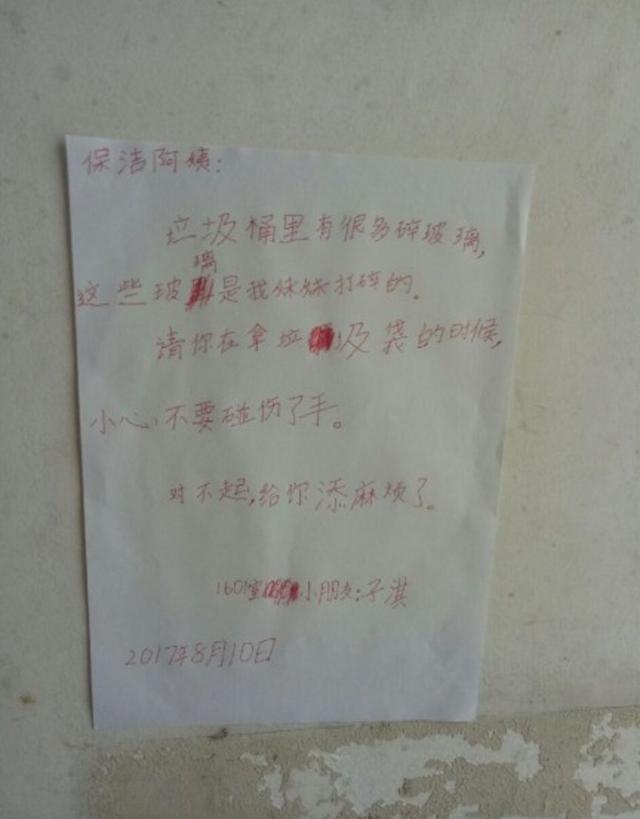 保洁阿姨:
垃圾桶里有很多碎玻璃,
这些玻璃是我妹妹打碎的.
请你在拿垃圾袋的时候,
小心,不要碰伤了手。
对不起,给你添麻烦了。
1601室小朋友:子淇
2017年8月10日